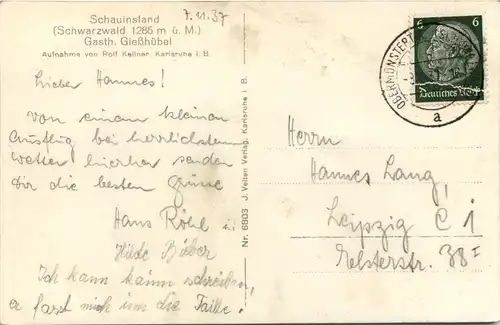 Schauinsland
(Schwarzwald 1286 m ü. M.)
Gasth. Gießhübel
Aufnahme von Rolf Kellner, Karlsruhe i. B.
7.11.37
Lieber Hannes!
Von einem kleinen
Ausflug bei herrlichstem
Wetter hierher senden
Dir die besten Grüße
Hans Röhl u.
Hilde
Ich kann kaum schreiben,
er fasst mich um die Taille!
Nr. 6803 J. Velten Verlag, Karlsruhe i. B.
6 6
Deutsches Reich
OBERMÜNSTERT
a
Herrn
Hannes Lang,
Leipzig C 1
Elsterstr. 38 I